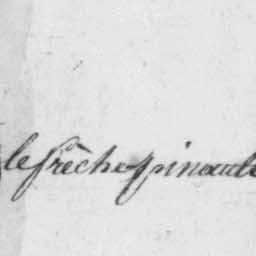 le frêche pinaude